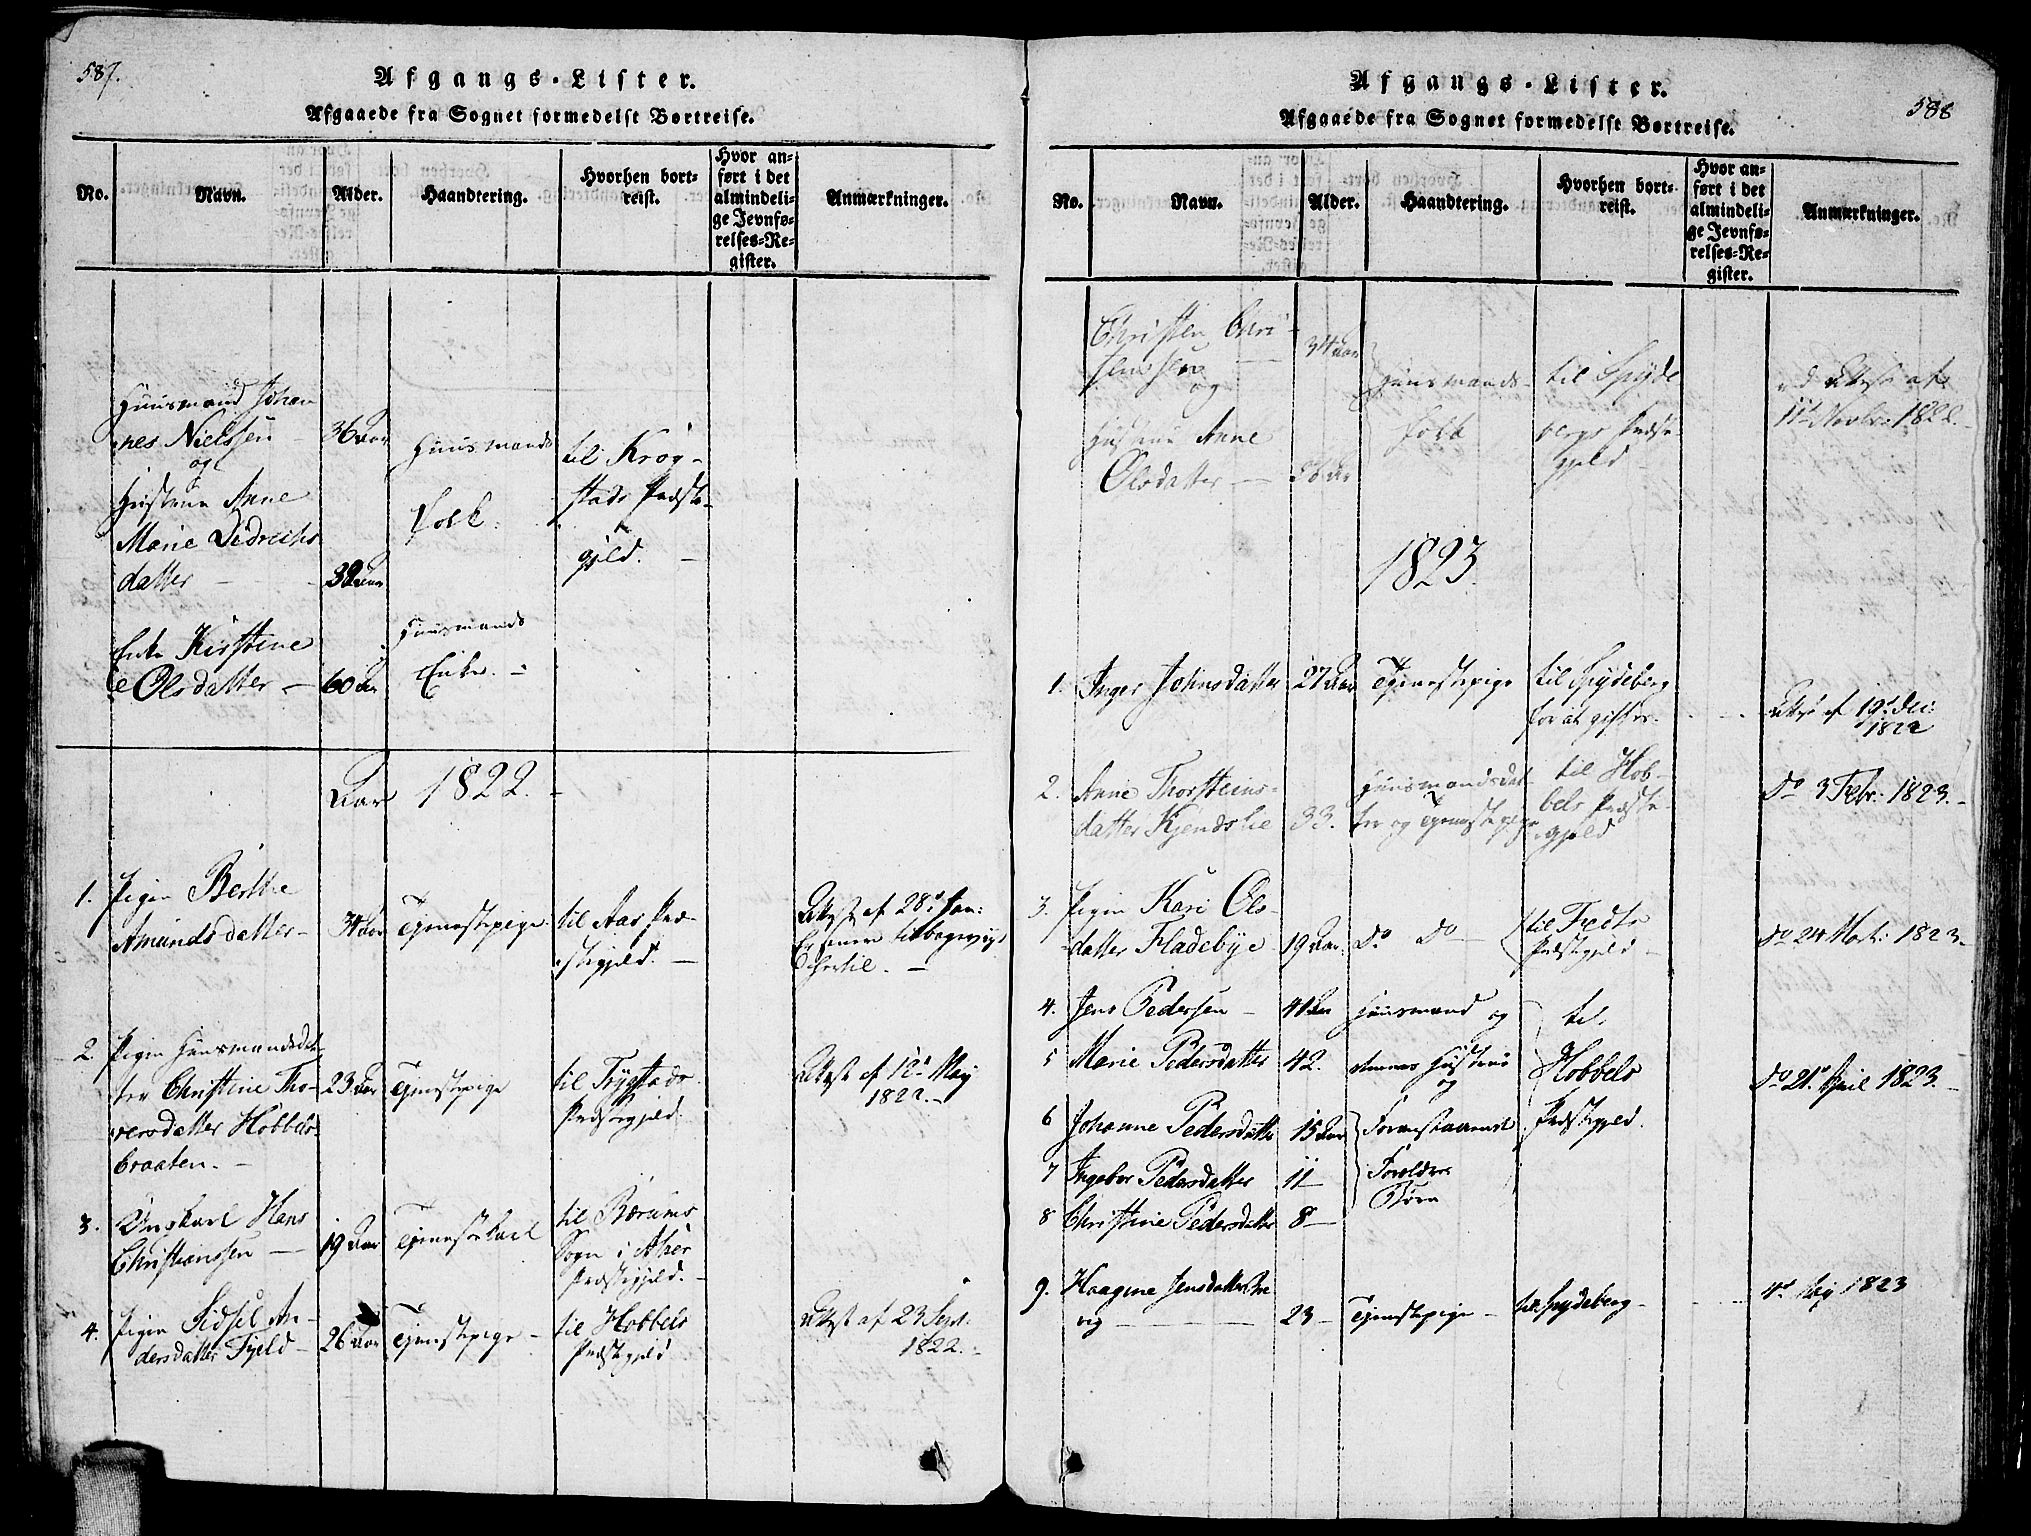 587.
Afgangs-Lister.
Afgaaede fra Sognet formedelst Bortreise.
No.
Navn.
Alder.
Haandtering.
Hvorhen bort-
reist.
Hvor an-
ført i det
almindeli-
ge Jevnfø-
relses-Re-
gister.
Anmærkninger.
Huusmand Johan
nes Nielssen
og
36 Aar
Hustrue Anne
Marie Didrichs
datter -
32 Aar
Huusmands
Folk.
til Krog-
stads Præste-
gjeld. -
Enke Kirstine
Olsdatter -
60 Aar
Huusmands
Enke. -
Aar 1822. -
1.
Pigen Berthe
Amundsdatter -
34 Aar
Tjenestepige
til Aas Præ-
stegjeld. -
Attest af 28de Jan:
2.
Pigen Huusmandsdat
ter Christine Tho-
versdatter Hobbels-
braaten. -
23 Aar
Tjenestepige
til Trygstads
Præstegjeld.
Attest af 12te May
1822. -
3.
Ungkarl Hans
Christianssen -
19 Aar
Tjenestekarl
til Bærums
Sogn i Asker
Præstegjeld. -
4.
Pigen Sidsel An-
dersdatter Fjeld -
26 Aar
Tjenestepige -
til Hobbels
Præstegjeld
Attest af 23 Sept.
1822. -
588
Afgangs-Lister.
Afgaaede fra Sognet formedelst Bortreise.
No.
Navn.
Alder.
Haandtering.
Hvorhen bort-
reist.
Hvor an-
ført i det
almindeli-
ge Jevnfø-
relses-Re-
gister.
Anmærkninger.
Christen Chri-
stensen
og
34 Aar
Hustrue Anne
Olsdatter -
36 Aar
Huusmands-
folk
til Spyde
bergs Præste-
gjeld -
Attest af
11te Novbr: 1822. -
1823.
1.
Inger Johnsdatter
27 Aar
Tjenestepige
til Spydeberg
for at giftes. -
Attest af 19de Dec:
1822
2.
Anne Thorsteins-
datter Kjendslie
33.
Huusmandsdat
ter og Tjenestepige
til Hob-
bels Præste-
gjeld
Do 3 Febr: 1823. -
3.
Pigen Kari Ols-
datter Fladebye -
19 Aar.
Do Do -
til Fedts
Præstegjeld -
Do 24 Marts: 1823. -
4.
Jens Pedersen -
41 Aar
Huusmand og
til
5
Marie Pedersdatter
42.
dennes Hustrue
og
Hobbels
Do 21de April 1823. -
6
Johanne Pedersdatter
15 Aar
Forestaaende
Præstegjeld.
7
Ingebor Pedersdatter
11 -
Forældres
8
Christine Pedersdatter
8 -
Børn
9.
Haagine Jensdatter
vig -
23 -
Tjenestepige -
til Spydeberg -
4de May 1823